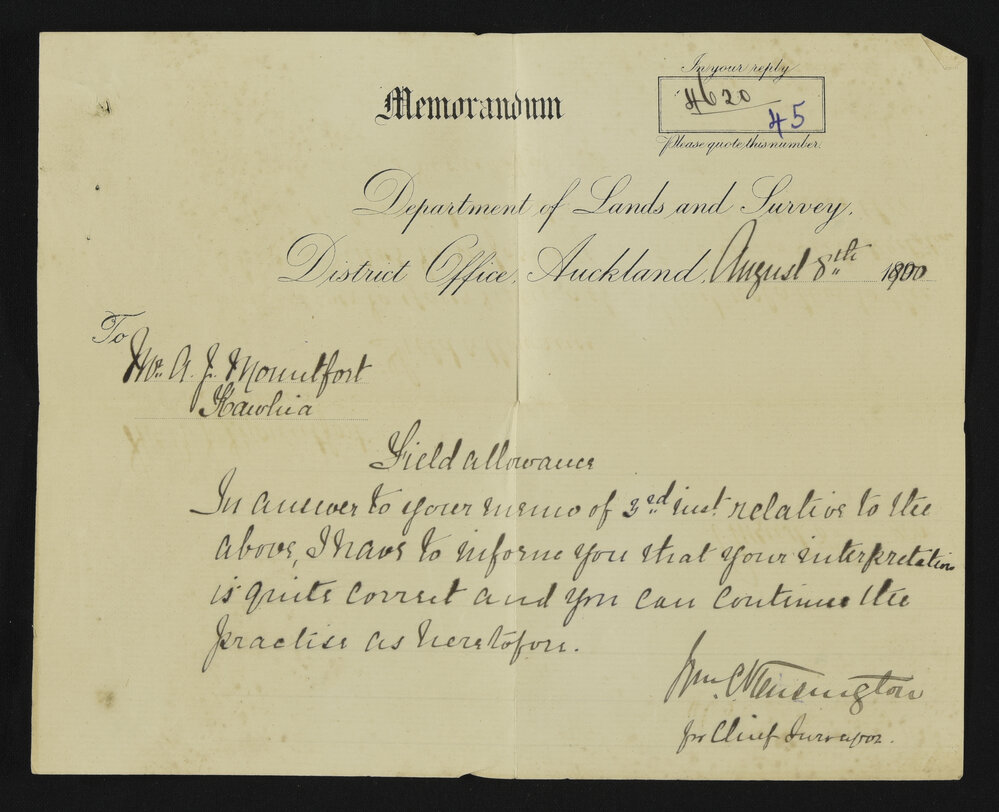 In your reply
4620
45
Please quote this number.
Memorandum
Department of Lands and Survey,
District Office, Auckland, August 8th 1890
To
Mr. A. J. Mountfort
Kawhia
Field allowance
In answer to your memo of 3rd inst. relative to the
above, I have to inform you that your interpretation
is quite correct and you can continue the
practise as heretofore.
Wm. C. Kensington
for Chief Surveyor.